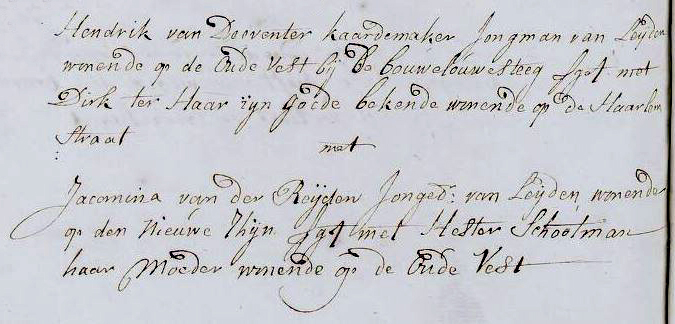 Hendrik van Deeventer kaardemaker Jongman van Leijden
wonende op de Oude Vest bij de bouwelouwesteeg Sgt met
Dirk ter Haar zijn goede bekende wonende op de Haarlem
straat
met
Jacomina van der Reijden Jonged: van Leijden wonende
op den Nieuwe Rhijn Sgt met Hester Schoolman
haar Moeder wonende op de Oude Vest